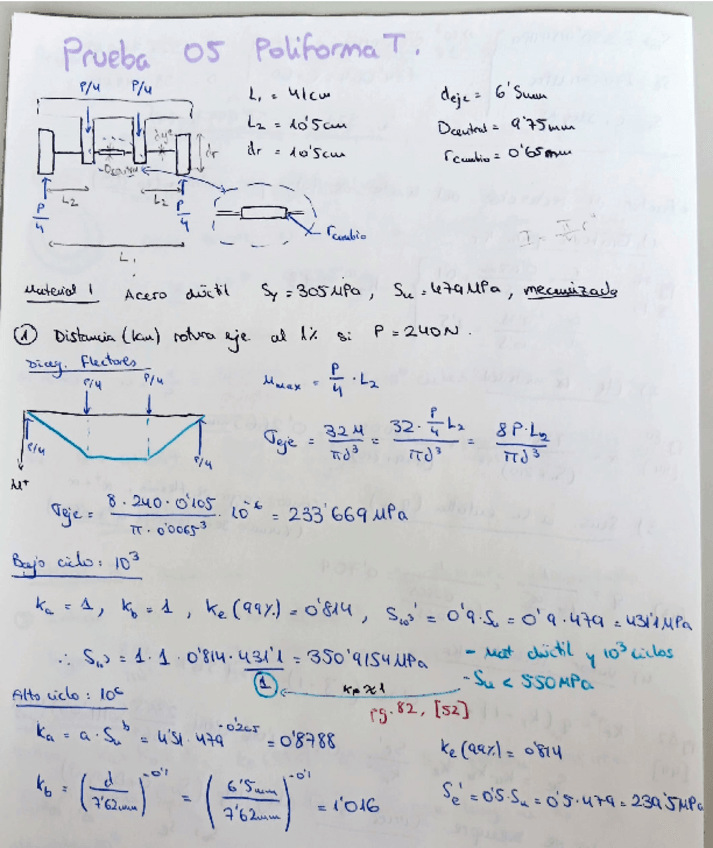 Prueba 05 PoliformaT.
P/4 P/4
L₁ = 41cm deje = 6'5mm
L₂ = 10'5cm Dcentral = 9'75mm
dr = 10'5cm rcambio = 0'65mm
dr
L2 L2
P/4 P/4
rcambio
L₁
Material 1 Acero dúctil Sy = 305MPa, Su = 479MPa, mecanizado
① Distancia (km) rotura eje al 1% si P = 240N.
Diag. Flectores
P/4 P/4
Mmax = P/4 · L₂
σeje = 32M/πd³ = 32·P/4 L₂/πd³ = 8P·L₂/πd³
P/4 P/4
M⁺
σeje = 8·240·0'105/π·0'0065³ · 10⁻⁶ = 233'669 MPa
Bajo ciclo: 10³
ka = 1, kb = 1, ke (99%) = 0'814, S₁₀³' = 0'9·Su = 0'9·479 = 431'1MPa
∴ S₁₀³ = 1·1·0'814·431'1/① = 350'9154MPa
- Mat dúctil y 10³ ciclos
- Su < 550MPa
kf ≈ 1
pg. 82, [52]
Alto ciclo: 10⁶
ka = a·Su^b = 4'51·479^-0'265 = 0'8788 ke (99%) = 0'814
kb = (d/7'62mm)^-0'1 = (6'5mm/7'62mm)^-0'1 = 1'016 Se' = 0'5·Su = 0'5·479 = 239'5MPa